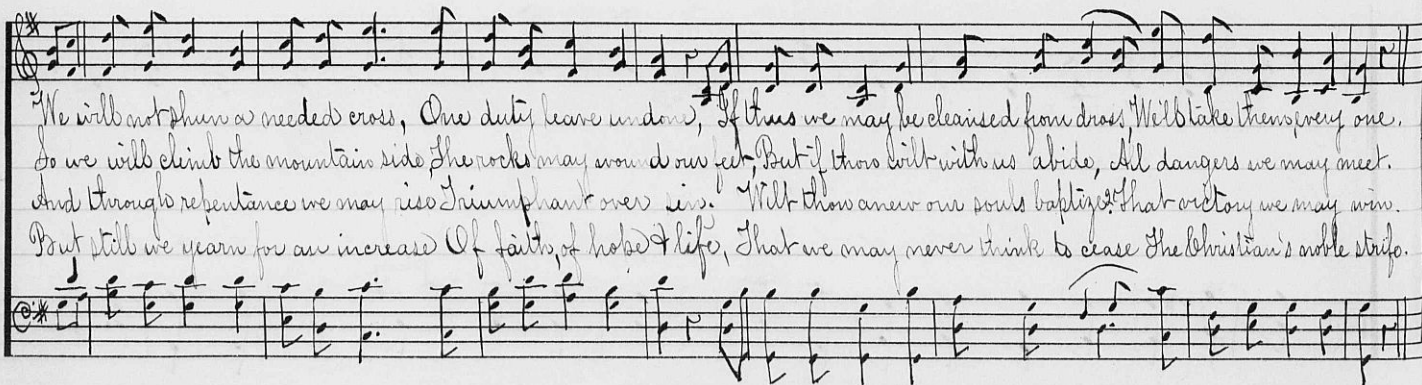 We will not shun a needed cross, One duty leave undone, If thus we may be cleansed from dross, We'll take them, every one.
So we will climb the mountain side, The rocks may wound our feet, But if thou wilt with us abide, All dangers we may meet.
And through repentance we may rise Triumphant over sin. Wilt thou anew our souls baptize? That victory we may win.
But still we yearn for an increase Of faith, of hope & life, That we may never think to cease The Christian's noble strife.